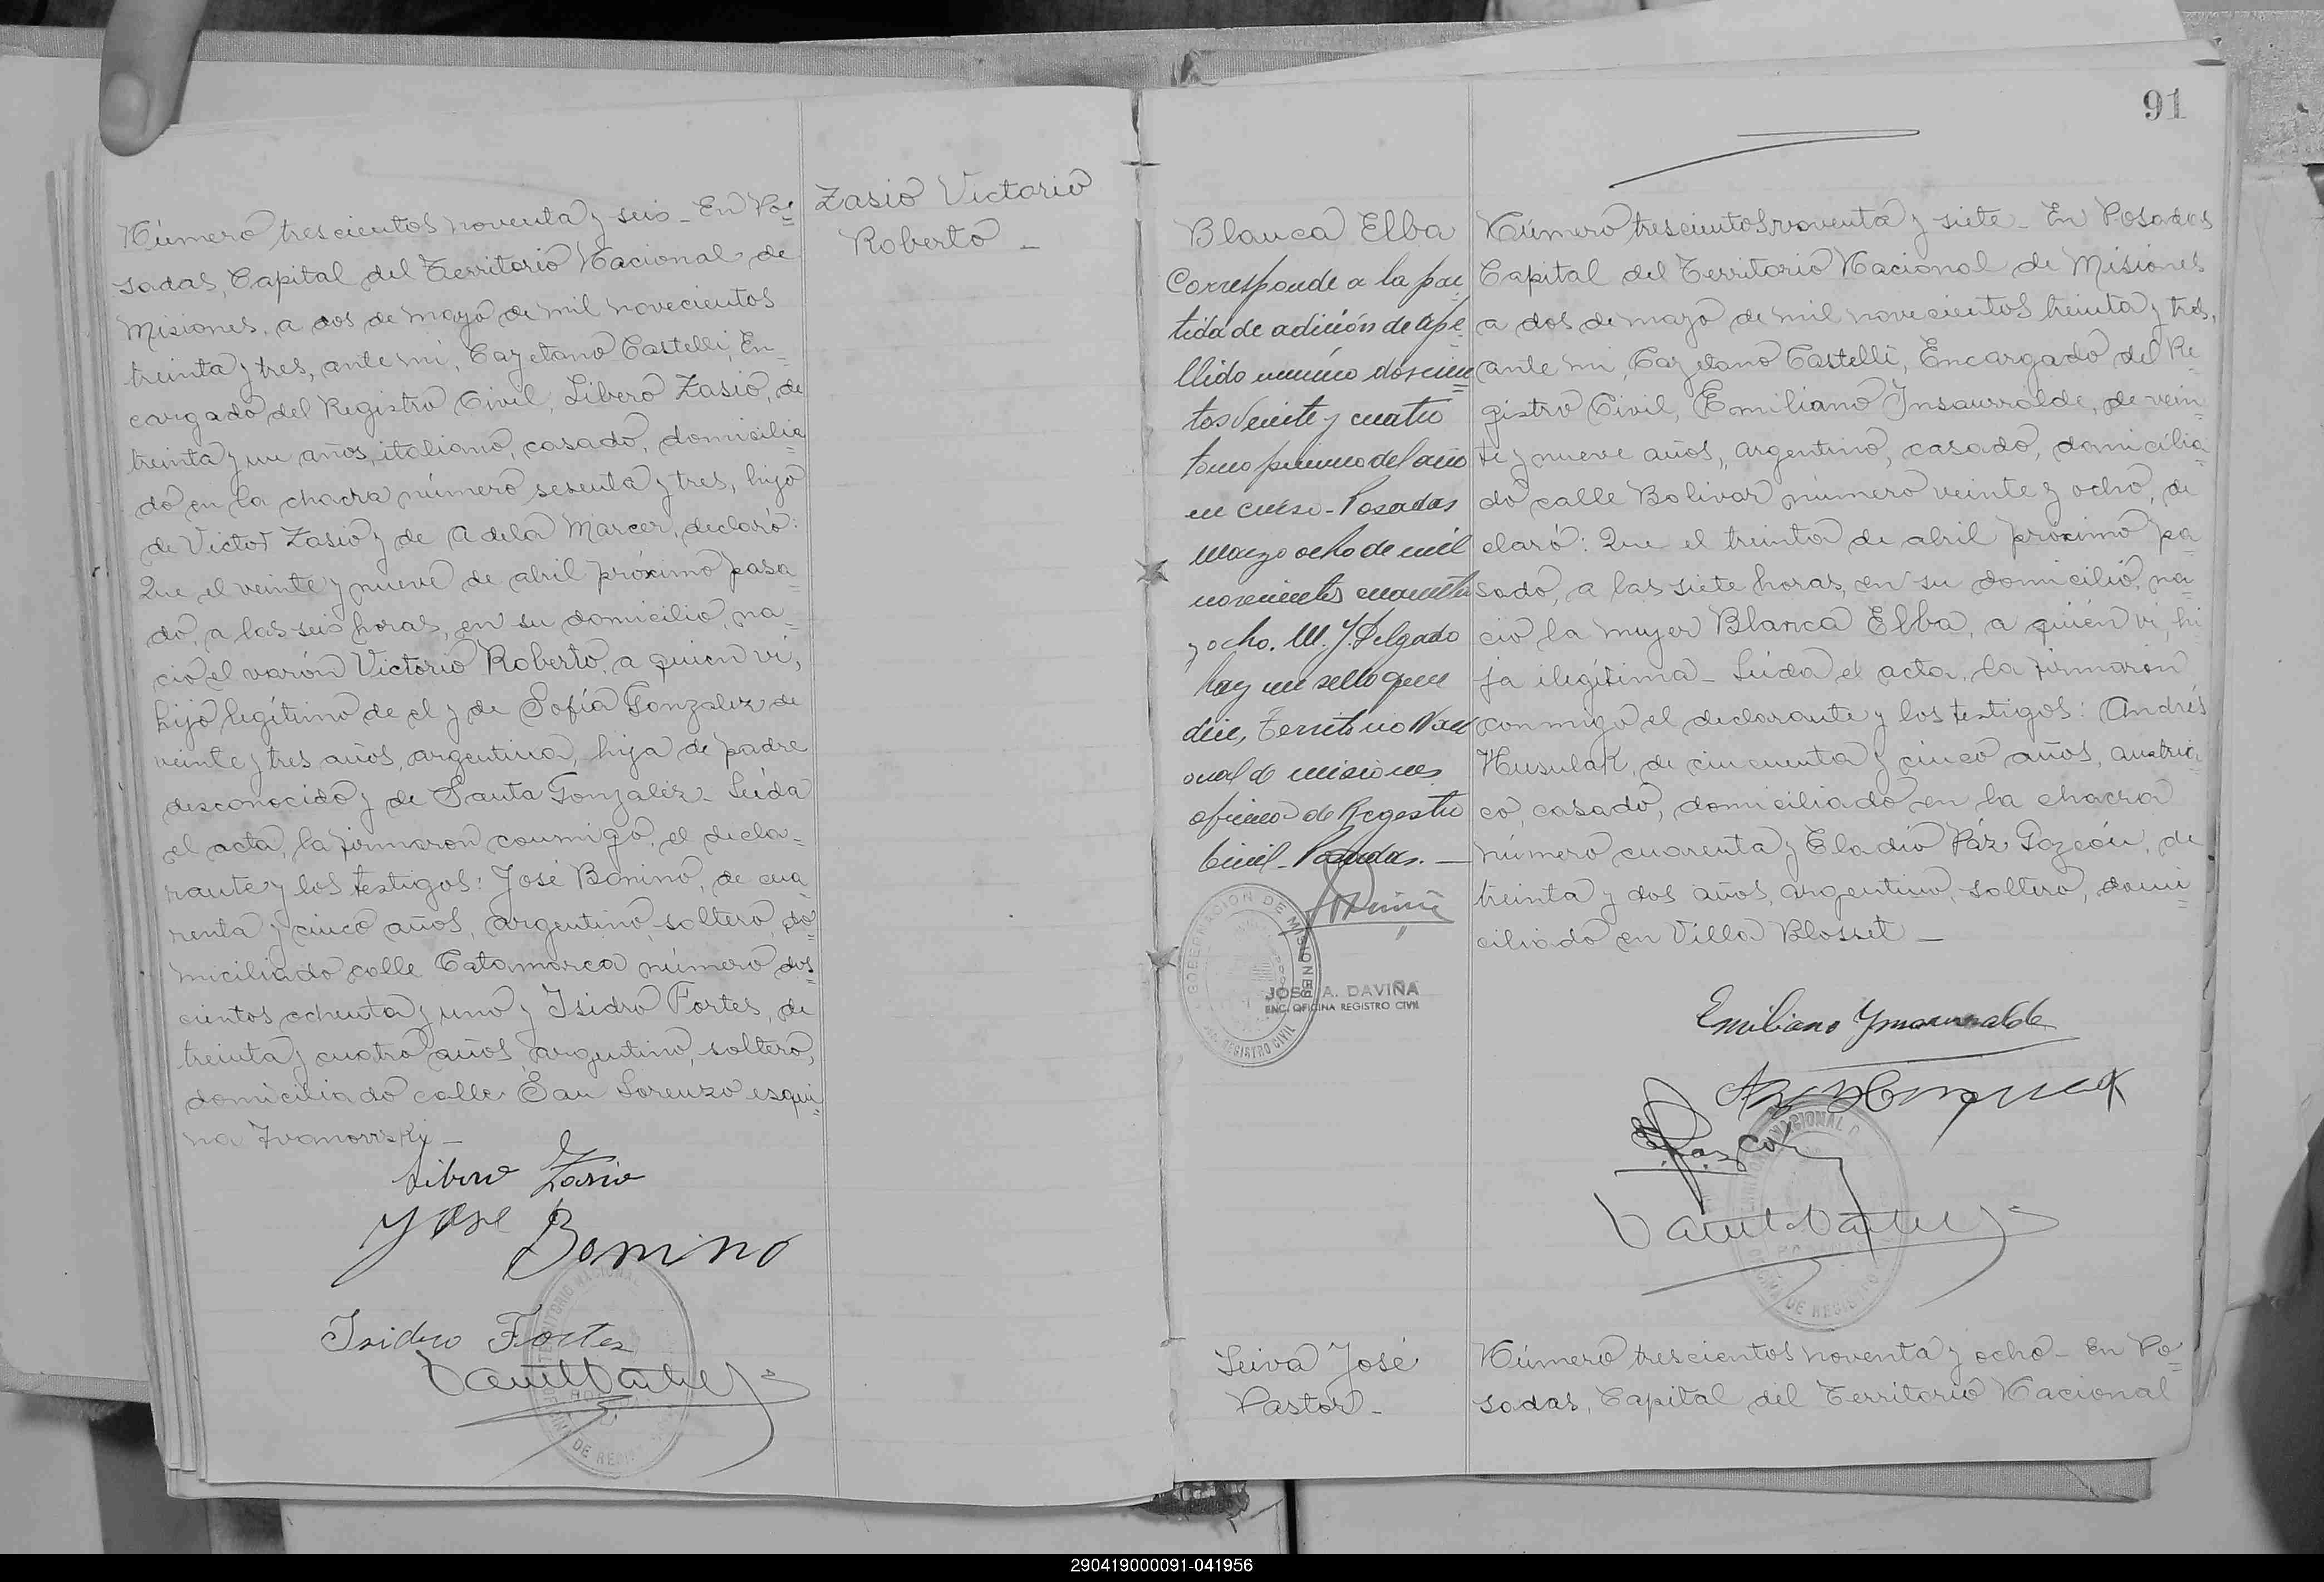 Número trescientos noventa y seis - En Po=
sadas, Capital del Territorio Nacional de
Misiones, a dos de mayo de mil novecientos
treinta y tres, ante mi, Cayetano Castelli, En-
cargado del Registro Civil, Libero Zasio, de
treinta y un años, italiano, casado, domicilia=
do en la chacra número sesenta y tres, hijo
de Victor Zasio y de Adela Marcer, declaró:
Que el veinte y nueve de abril próximo pasa=
do, a las seis horas, en su domicilio, na=
ció el varón Victorio Roberto, a quien vi,
hijo legítimo de el y de Sofía Gonzalez de
veinte y tres años, argentina, hija de padre
desconocido y de Santa Gonzalez - Leída
el acta, la firmaron conmigo, el decla=
rante y los testigos: José Bonino, de cua
renta y cinco años, argentino, soltero, do=
miciliado calle Catamarca número dos=
cientos ochenta y uno y Isidro Fortes, de
treinta y cuatro años, argentino, soltero,
domiciliado calle San Lorenzo esqui=
na Ivanowski -
Libero Zasio
Jose Bonino
Isidro Fortes
Zasio Victorio
Roberto -
91
Blanca Elba
Corresponde a la par
tida de adición de ape
llido número doscien=
tos veinte y cuatro
tomo primero del año
en curso - Posadas
Marzo ocho de mil
novecientos cuarenta
y ocho. M. J. Delgado
hay un sello que
dice, Territorio Naci
onal de misiones
oficina de Registro
Civil - Posadas. -
GOBERNACION DE MISIONES
REGISTRO CIVIL
JOSE A. DAVIÑA
ENC. OFICINA REGISTRO CIVIL
Número trescientos noventa y siete - En Posadas
Capital del Territorio Nacional de Misiones
a dos de mayo de mil novecientos treinta y tres,
ante mi, Cayetano Castelli, Encargado del Re
gistro Civil, Emiliano Insaurralde, de vein
te y nueve años, argentino, casado, domicilia=
do calle Bolivar número veinte y ocho, de
claró: Que el treinta de abril próximo pa=
sado, a las siete horas, en su domicilio, na=
ció la mujer Blanca Elba, a quién vi, hi
ja ilegítima - Leída el acta, la firmaron
conmigo el declarante y los testigos: Andrés
Husulak, de cincuenta y cinco años, austria=
co, casado, domiciliado en la chacra
número cuarenta y Eladio Páz, de
treinta y dos años, argentino, soltero, domi=
ciliado en Villa Blosset -
Emiliano Ynsaurralde
Leiva José
Pastor -
Número trescientos noventa y ocho - En Po=
sadas, Capital del Territorio Nacional
290419000091-041956